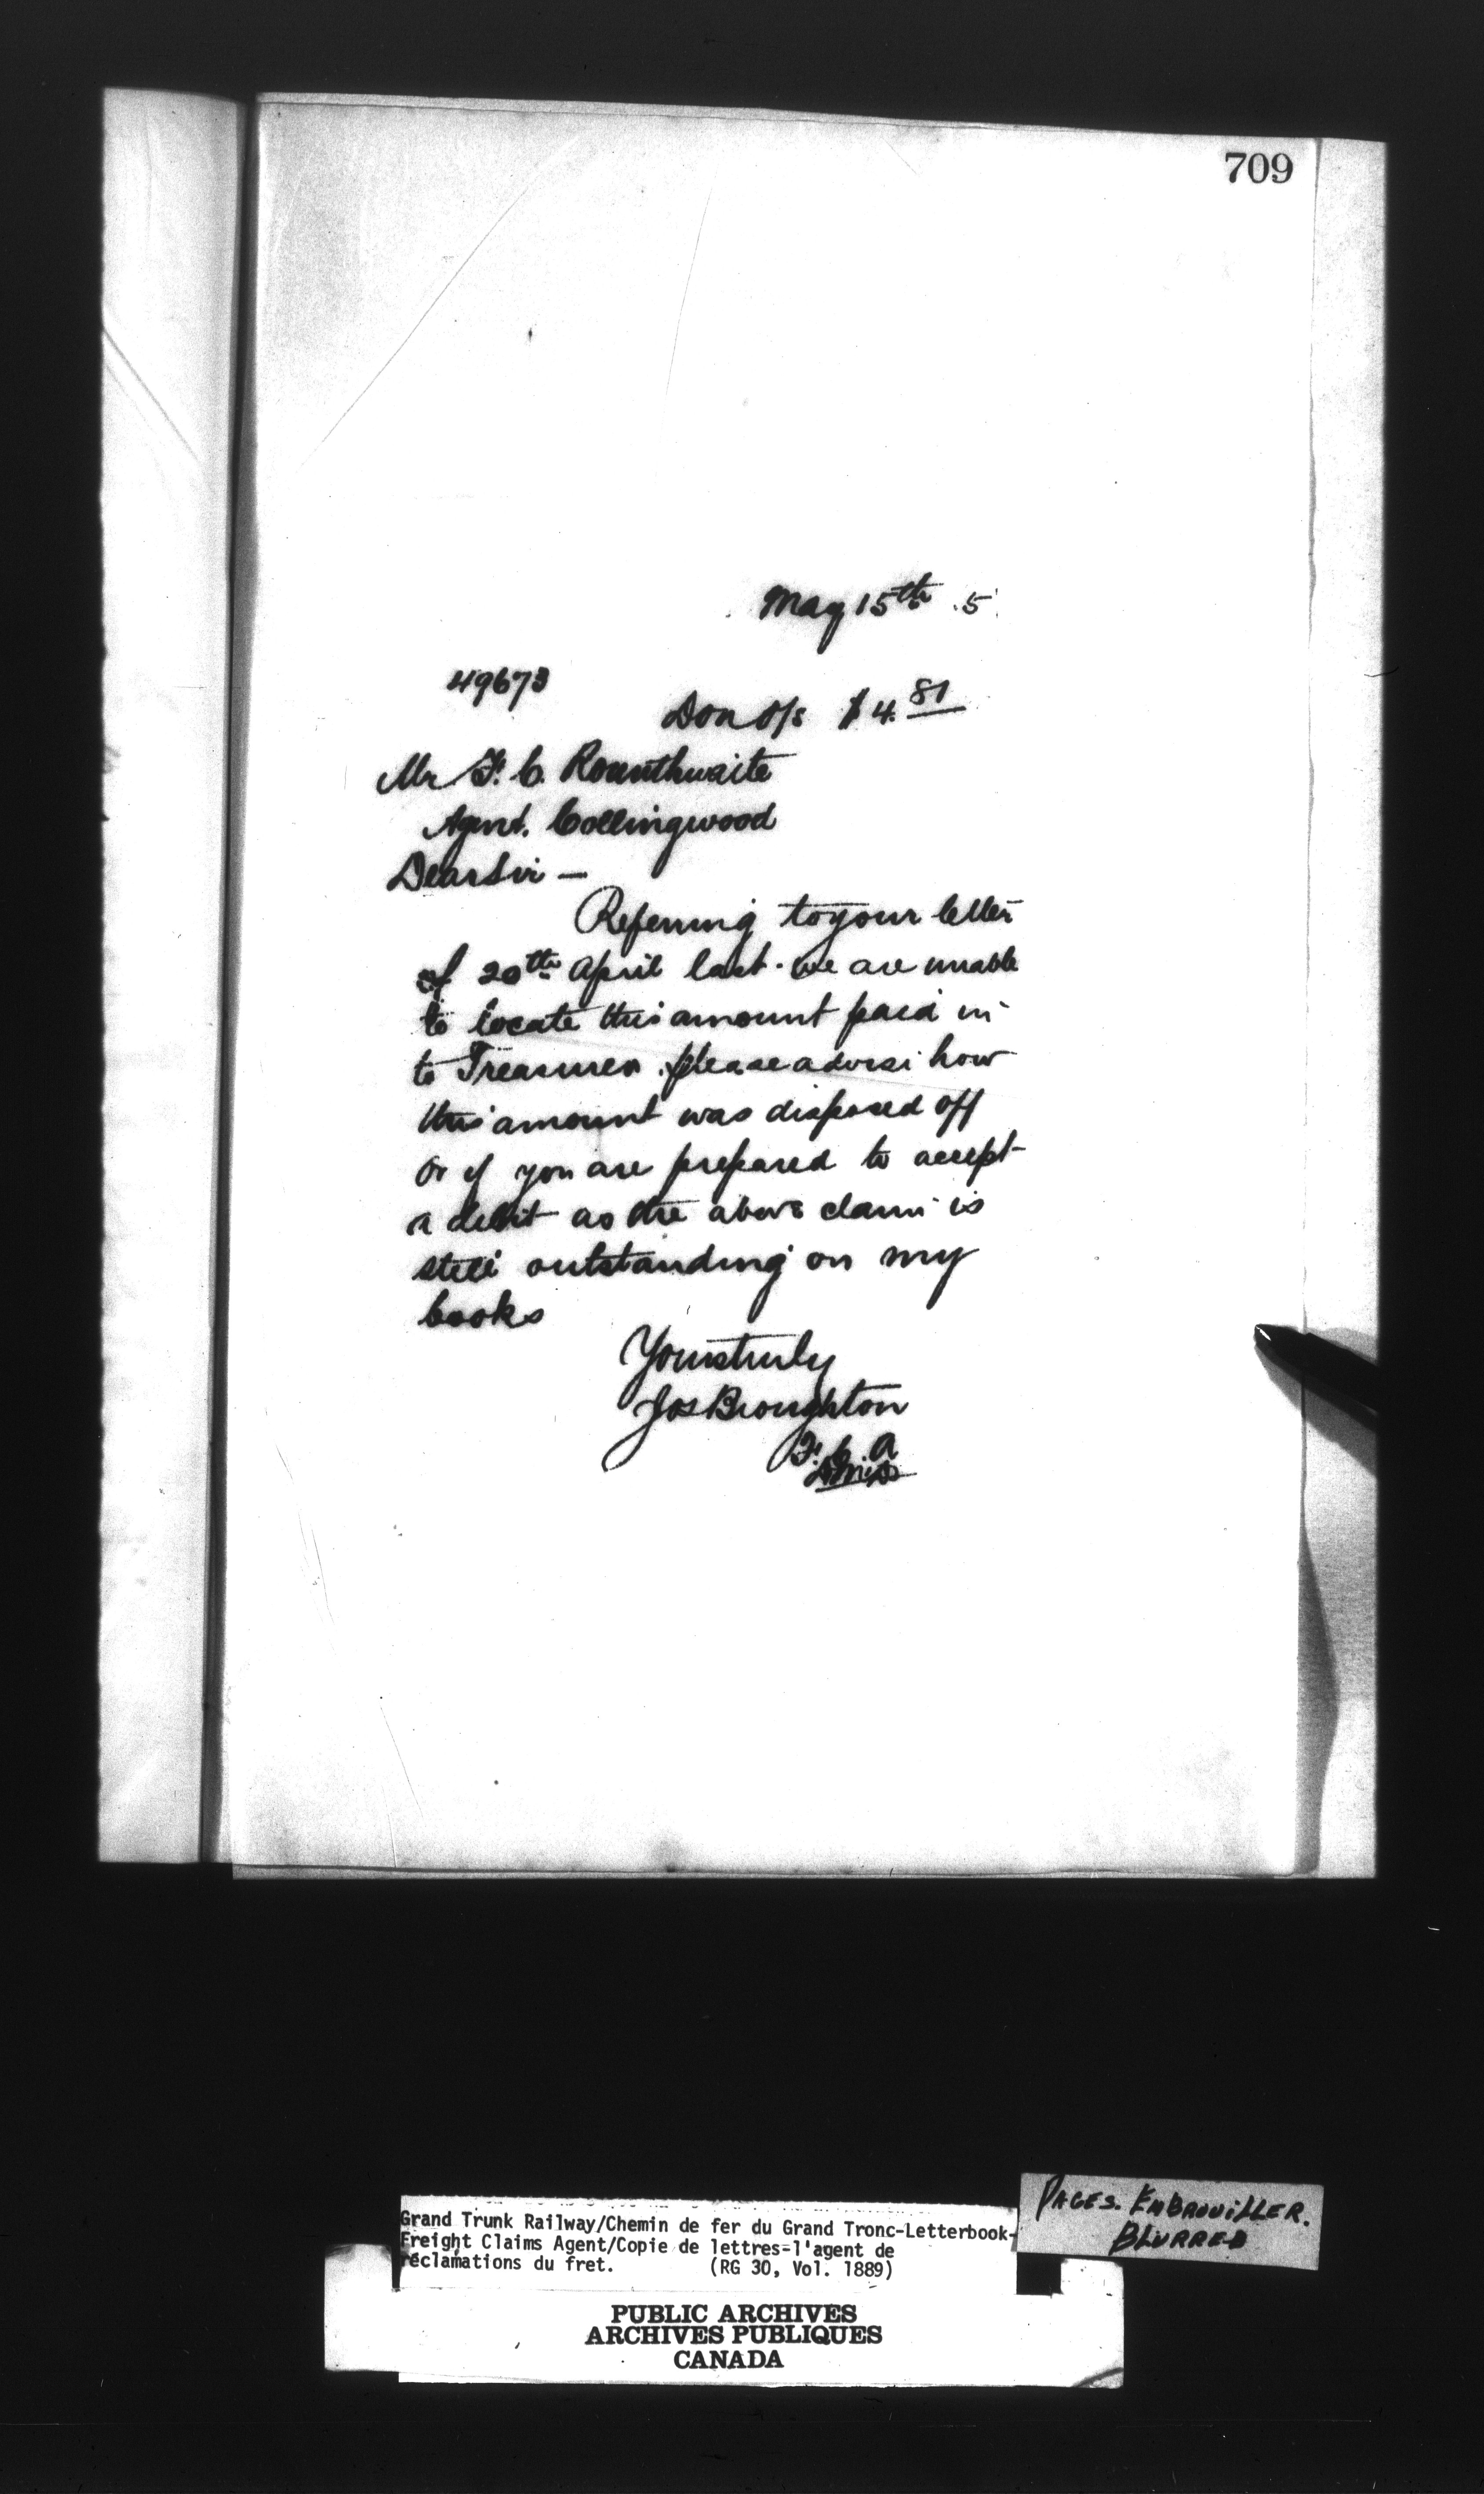 709
May 15th 5
49673
Don O/s $4.81
Mr F. C. Rounthwaite
Agent. Collingwood
Dear Sir —
Referring to your letter
of 20th April last. we are unable
to locate this amount paid in
to Treasurer. please advise how
this amount was disposed off
or if you are prepared to accept
a debit as the above claim is
still outstanding on my
books
Yours truly
Jos Broughton
F. C. A
PAGES. EMBROUILLER.
BLURRED
Grand Trunk Railway/Chemin de fer du Grand Tronc-Letterbook-
Freight Claims Agent/Copie de lettres=l'agent de
réclamations du fret. (RG 30, Vol. 1889)
PUBLIC ARCHIVES
ARCHIVES PUBLIQUES
CANADA